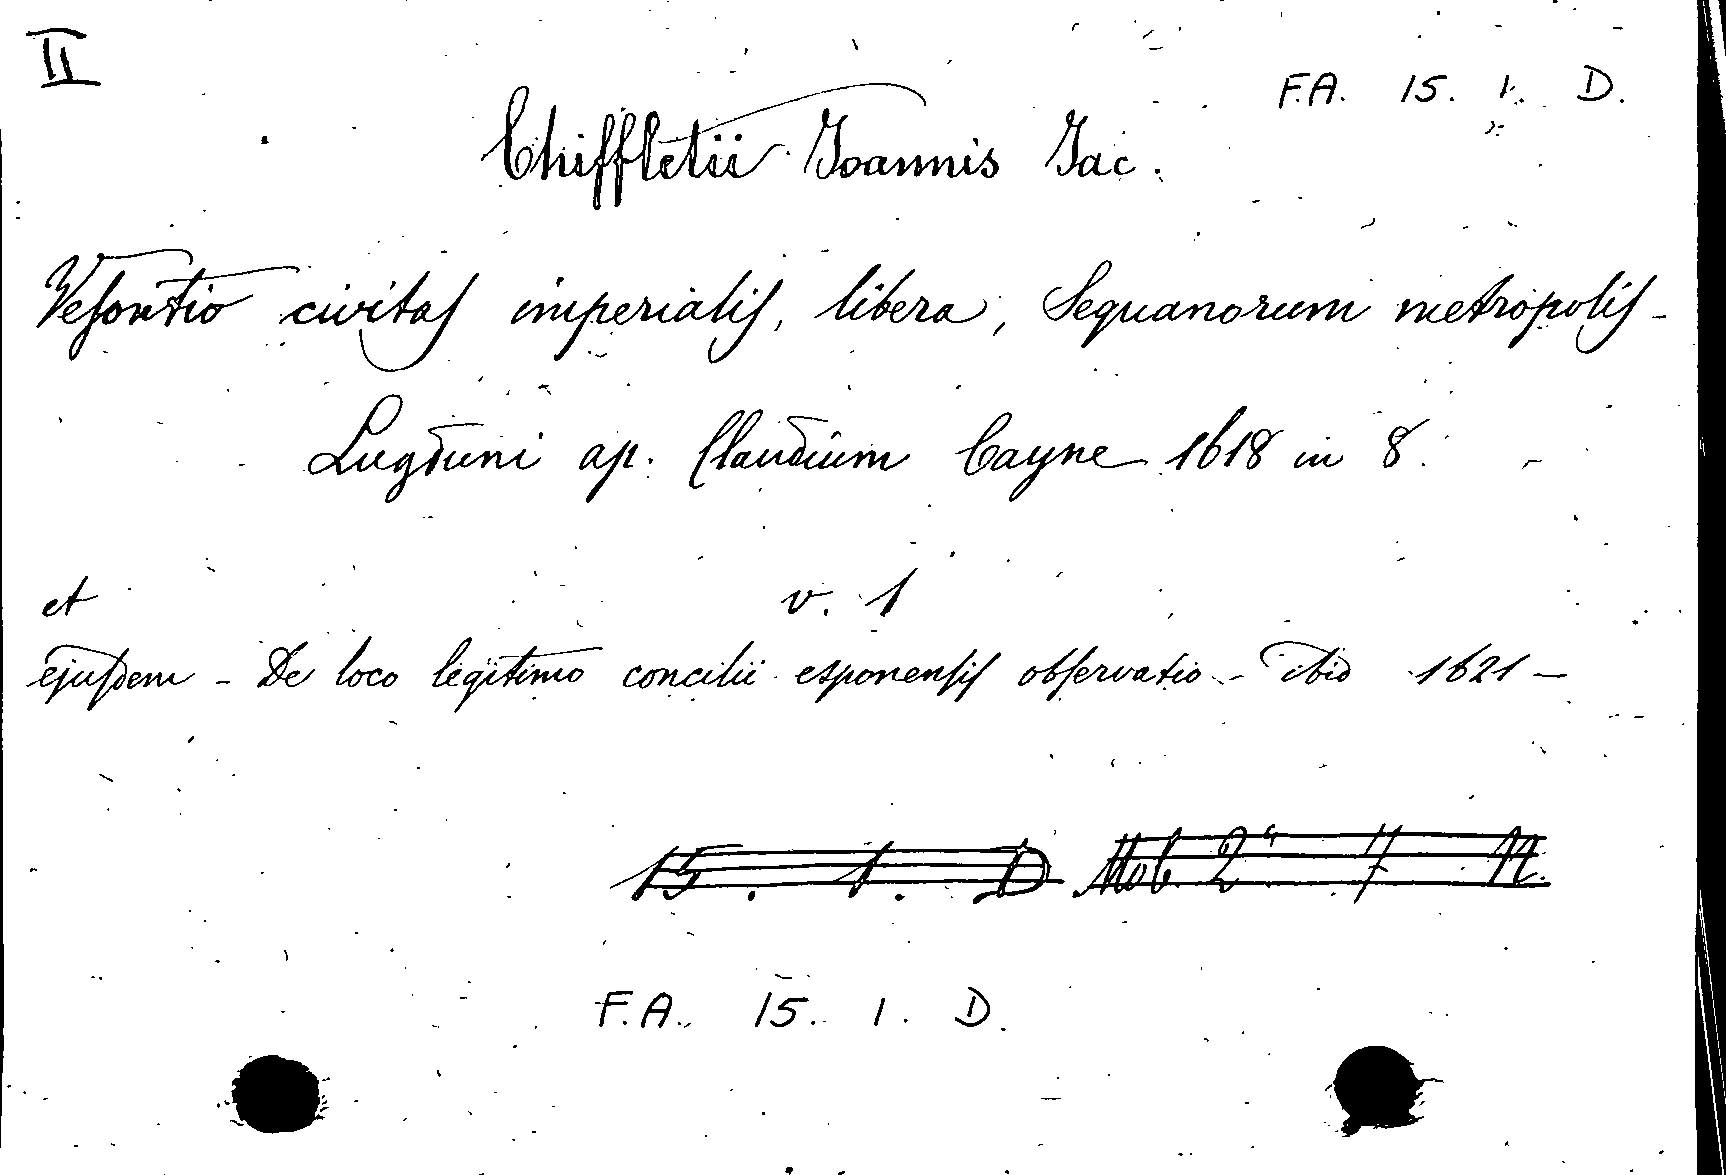 II
F.A. 15. 1. D.
Chiffletii Joannis Jac.
Vesontio civitas imperialis, libera, Sequanorum metropolis -
Lugduni ap. Claudium Cayne 1618 in 8.
et v. 1
ejusdem - De loco legitimo concilii esponensis observatio - Ibid 1621 -
15. 1. D Mob. 2a 7 N.
F.A. 15. 1. D.